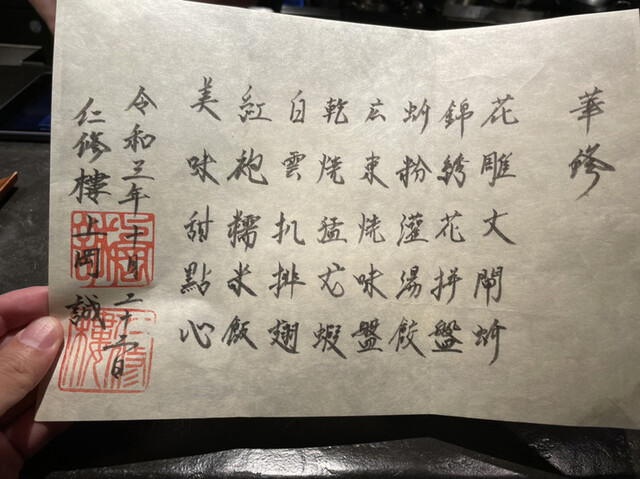 華修
花雕大閘蚧
錦綉花拼盤
蚧粉灌湯餃
広東焼味盤
乾焼猛尤蝦
白雲扒排翅
紅袍糯米飯
美味甜點心
令和三年十月二十六日
仁修樓上岡誠